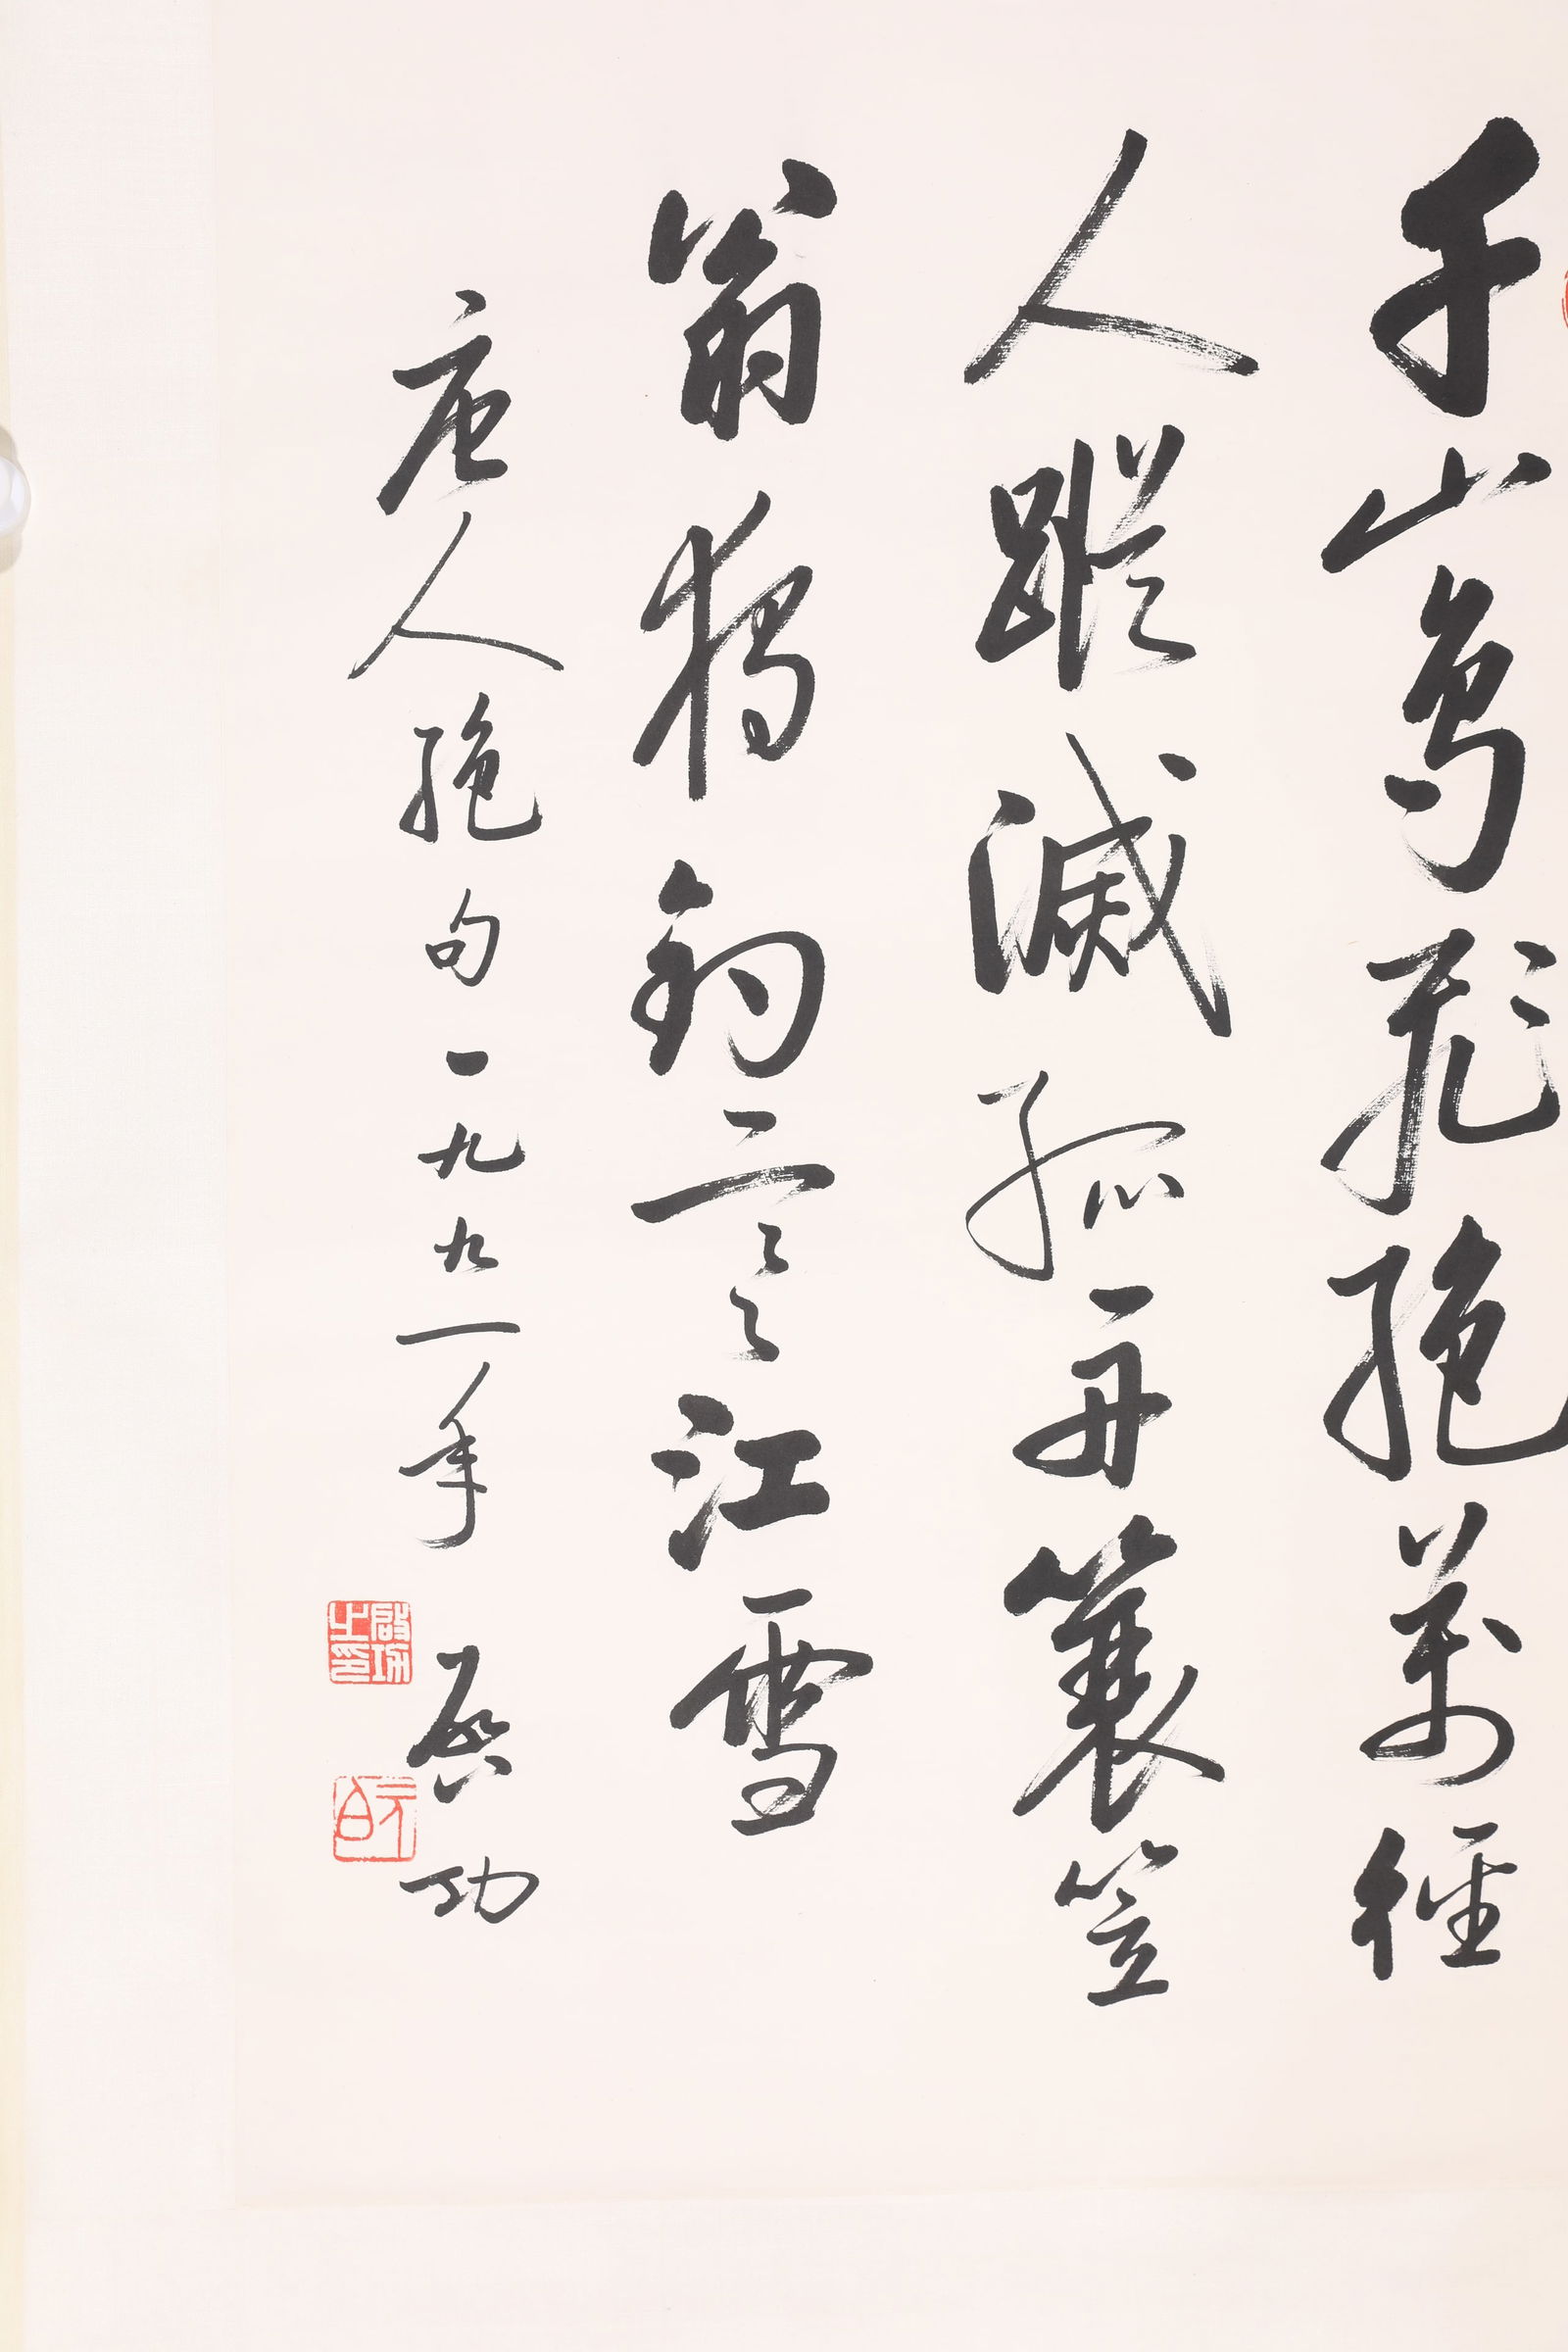 千山鳥飛絕萬徑
人蹤滅孤舟簑笠
翁獨釣寒江雪
唐人絕句一九九一年 啓功
啟功之印
元白